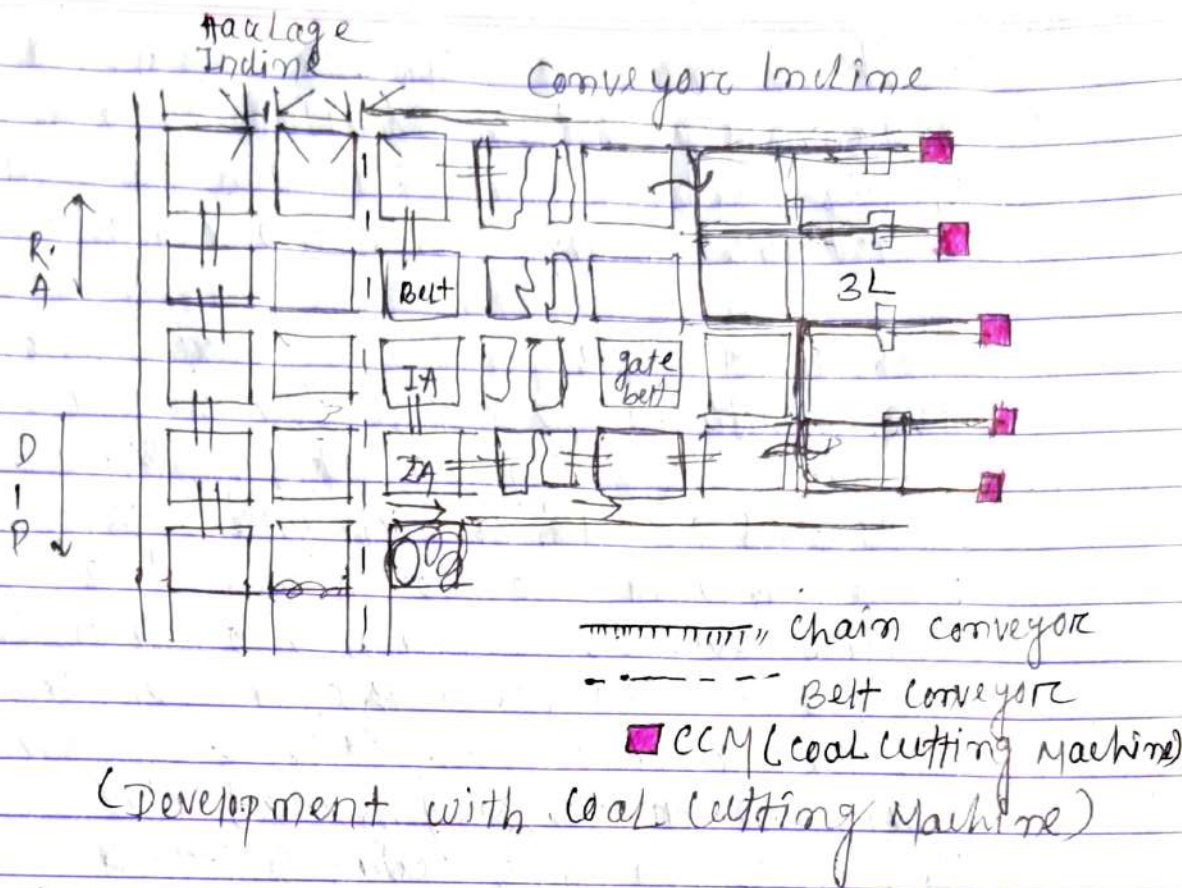 Haulage
Incline
Conveyorc Incline
R.
A
Belt
3L
IA
gate
belt
D
I
P
IA
chain conveyorc
Belt conveyorc
CCM (coal cutting Machine)
(Development with coal cutting Machine)